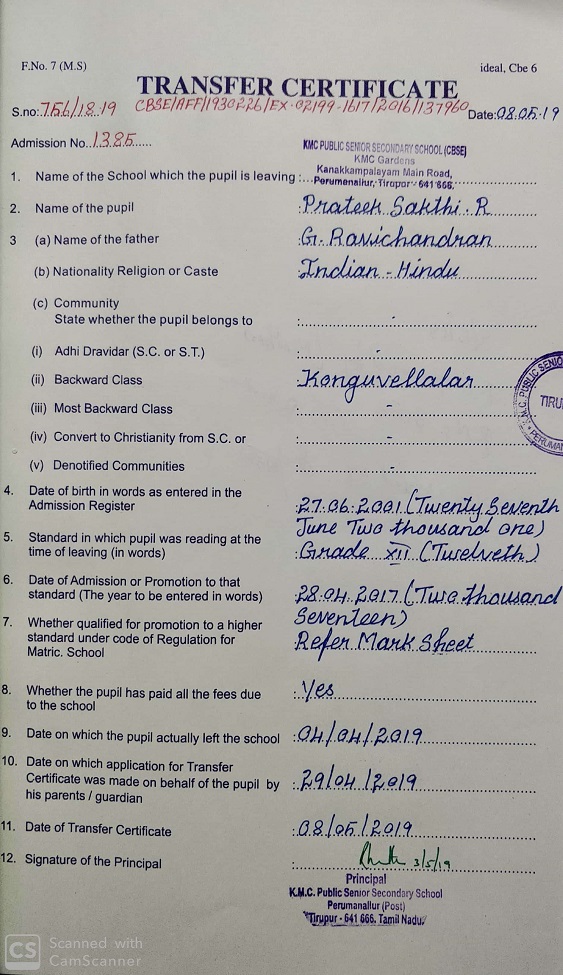 F.No. 7 (M.S)
ideal, Cbe 6
TRANSFER CERTIFICATE
S.no:.756/18.19 CBSE/AFF/1930226/EX-02199-1617/2016/137960 Date:08.05.19
Admission No..1385......
KMC PUBLIC SENIOR SECONDARY SCHOOL (CBSE)
KMC Gardens
Kanakkampalayam Main Road,
1. Name of the School which the pupil is leaving :... Perumanallur, Tirupur - 641 666.
2. Name of the pupil :Prateek Sakthi.R
3 (a) Name of the father :G.Ravichandran
(b) Nationality Religion or Caste :Indian - Hindu
(c) Community
State whether the pupil belongs to : -
(i) Adhi Dravidar (S.C. or S.T.) : -
(ii) Backward Class :Konguvellalar
(iii) Most Backward Class : -
(iv) Convert to Christianity from S.C. or : -
(v) Denotified Communities : -
K.M.C. PUBLIC SENIO
TIRU
PERUMAN
4. Date of birth in words as entered in the
Admission Register :27.06.2001 (Twenty Seventh
June Two thousand one)
5. Standard in which pupil was reading at the
time of leaving (in words) :Grade XII (Twelveth)
6. Date of Admission or Promotion to that
standard (The year to be entered in words) :28.04.2017 (Two thousand
Seventeen)
7. Whether qualified for promotion to a higher
standard under code of Regulation for
Matric. School Refer Mark Sheet
8. Whether the pupil has paid all the fees due
to the school :Yes
9. Date on which the pupil actually left the school :04/04/2019
10. Date on which application for Transfer
Certificate was made on behalf of the pupil by
his parents / guardian :29/04/2019
11. Date of Transfer Certificate :08/05/2019
12. Signature of the Principal : 3/5/19
Principal
K.M.C. Public Senior Secondary School
Perumanallur (Post)
Tirupur - 641 666. Tamil Nadu.
CS Scanned with
CamScanner